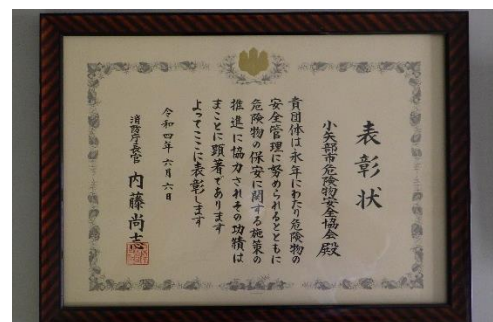 表彰状
小矢部市危険物安全協会 殿
貴団体は永年にわたり危険物の
安全管理に努められるとともに
危険物の保安に関する施策の
推進に協力されその功績は
まことに顕著であります
よってここに表彰します
令和四年六月六日
消防庁長官 内藤尚志